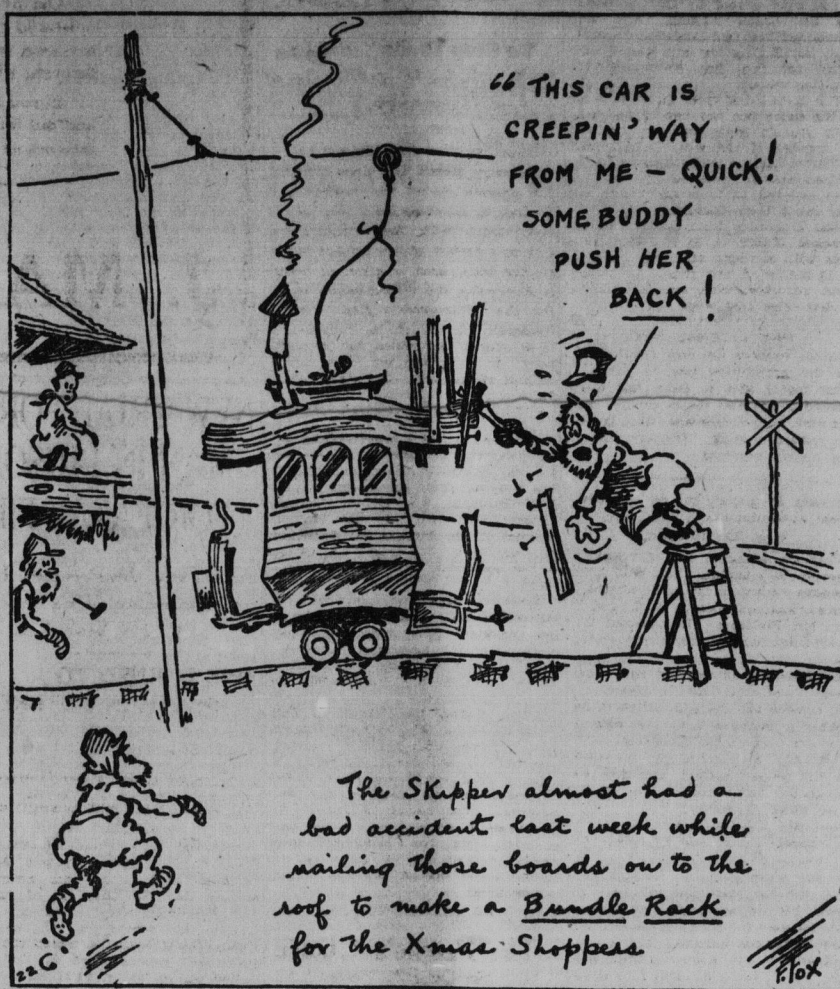 “THIS CAR IS
CREEPIN' WAY
FROM ME - QUICK!
SOMEBUDDY
PUSH HER
BACK!
The Skipper almost had a
bad accident last week while
nailing those boards on to the
roof to make a Bundle Rack
for the Xmas Shoppers
226
F. FOX